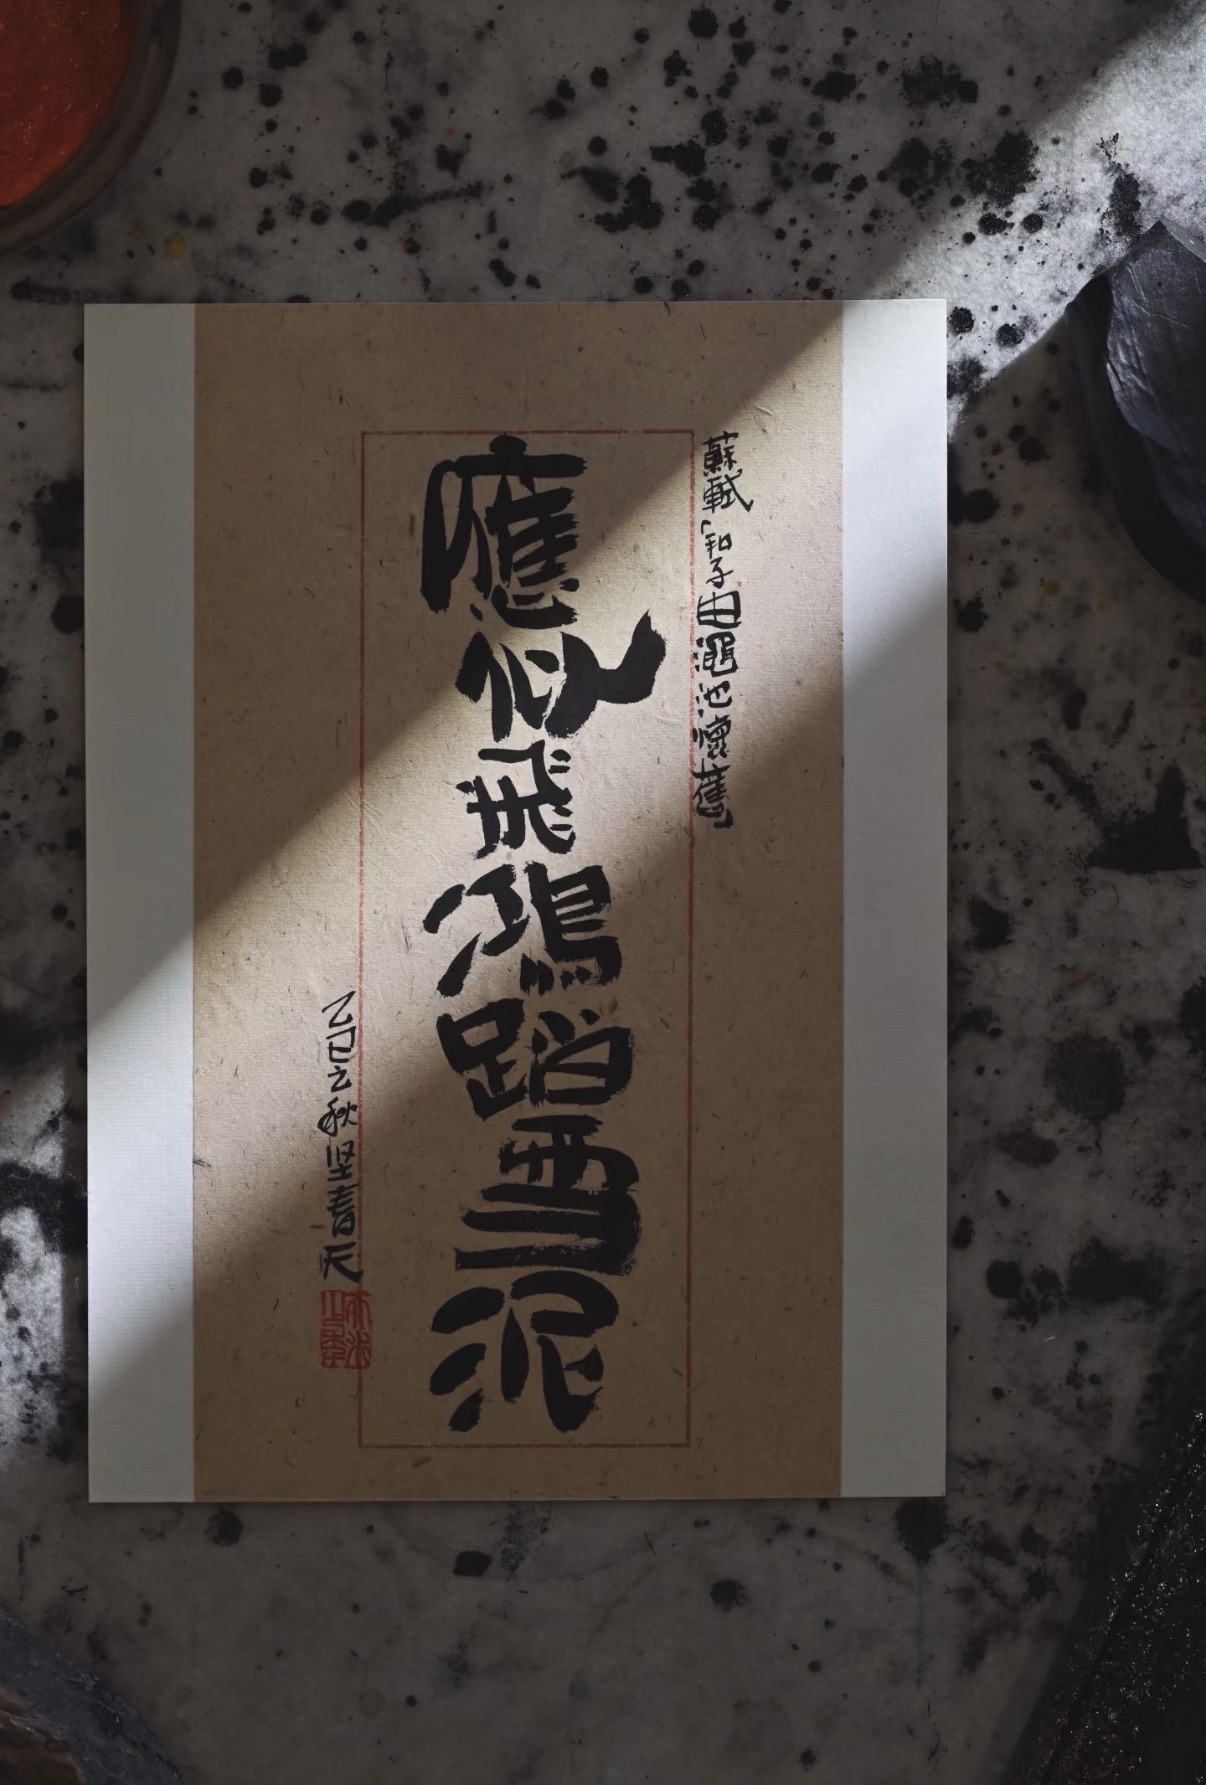 蘇軾和子由澠池懷舊
應似飛鴻蹈雪泥
乙巳之秋坚青天